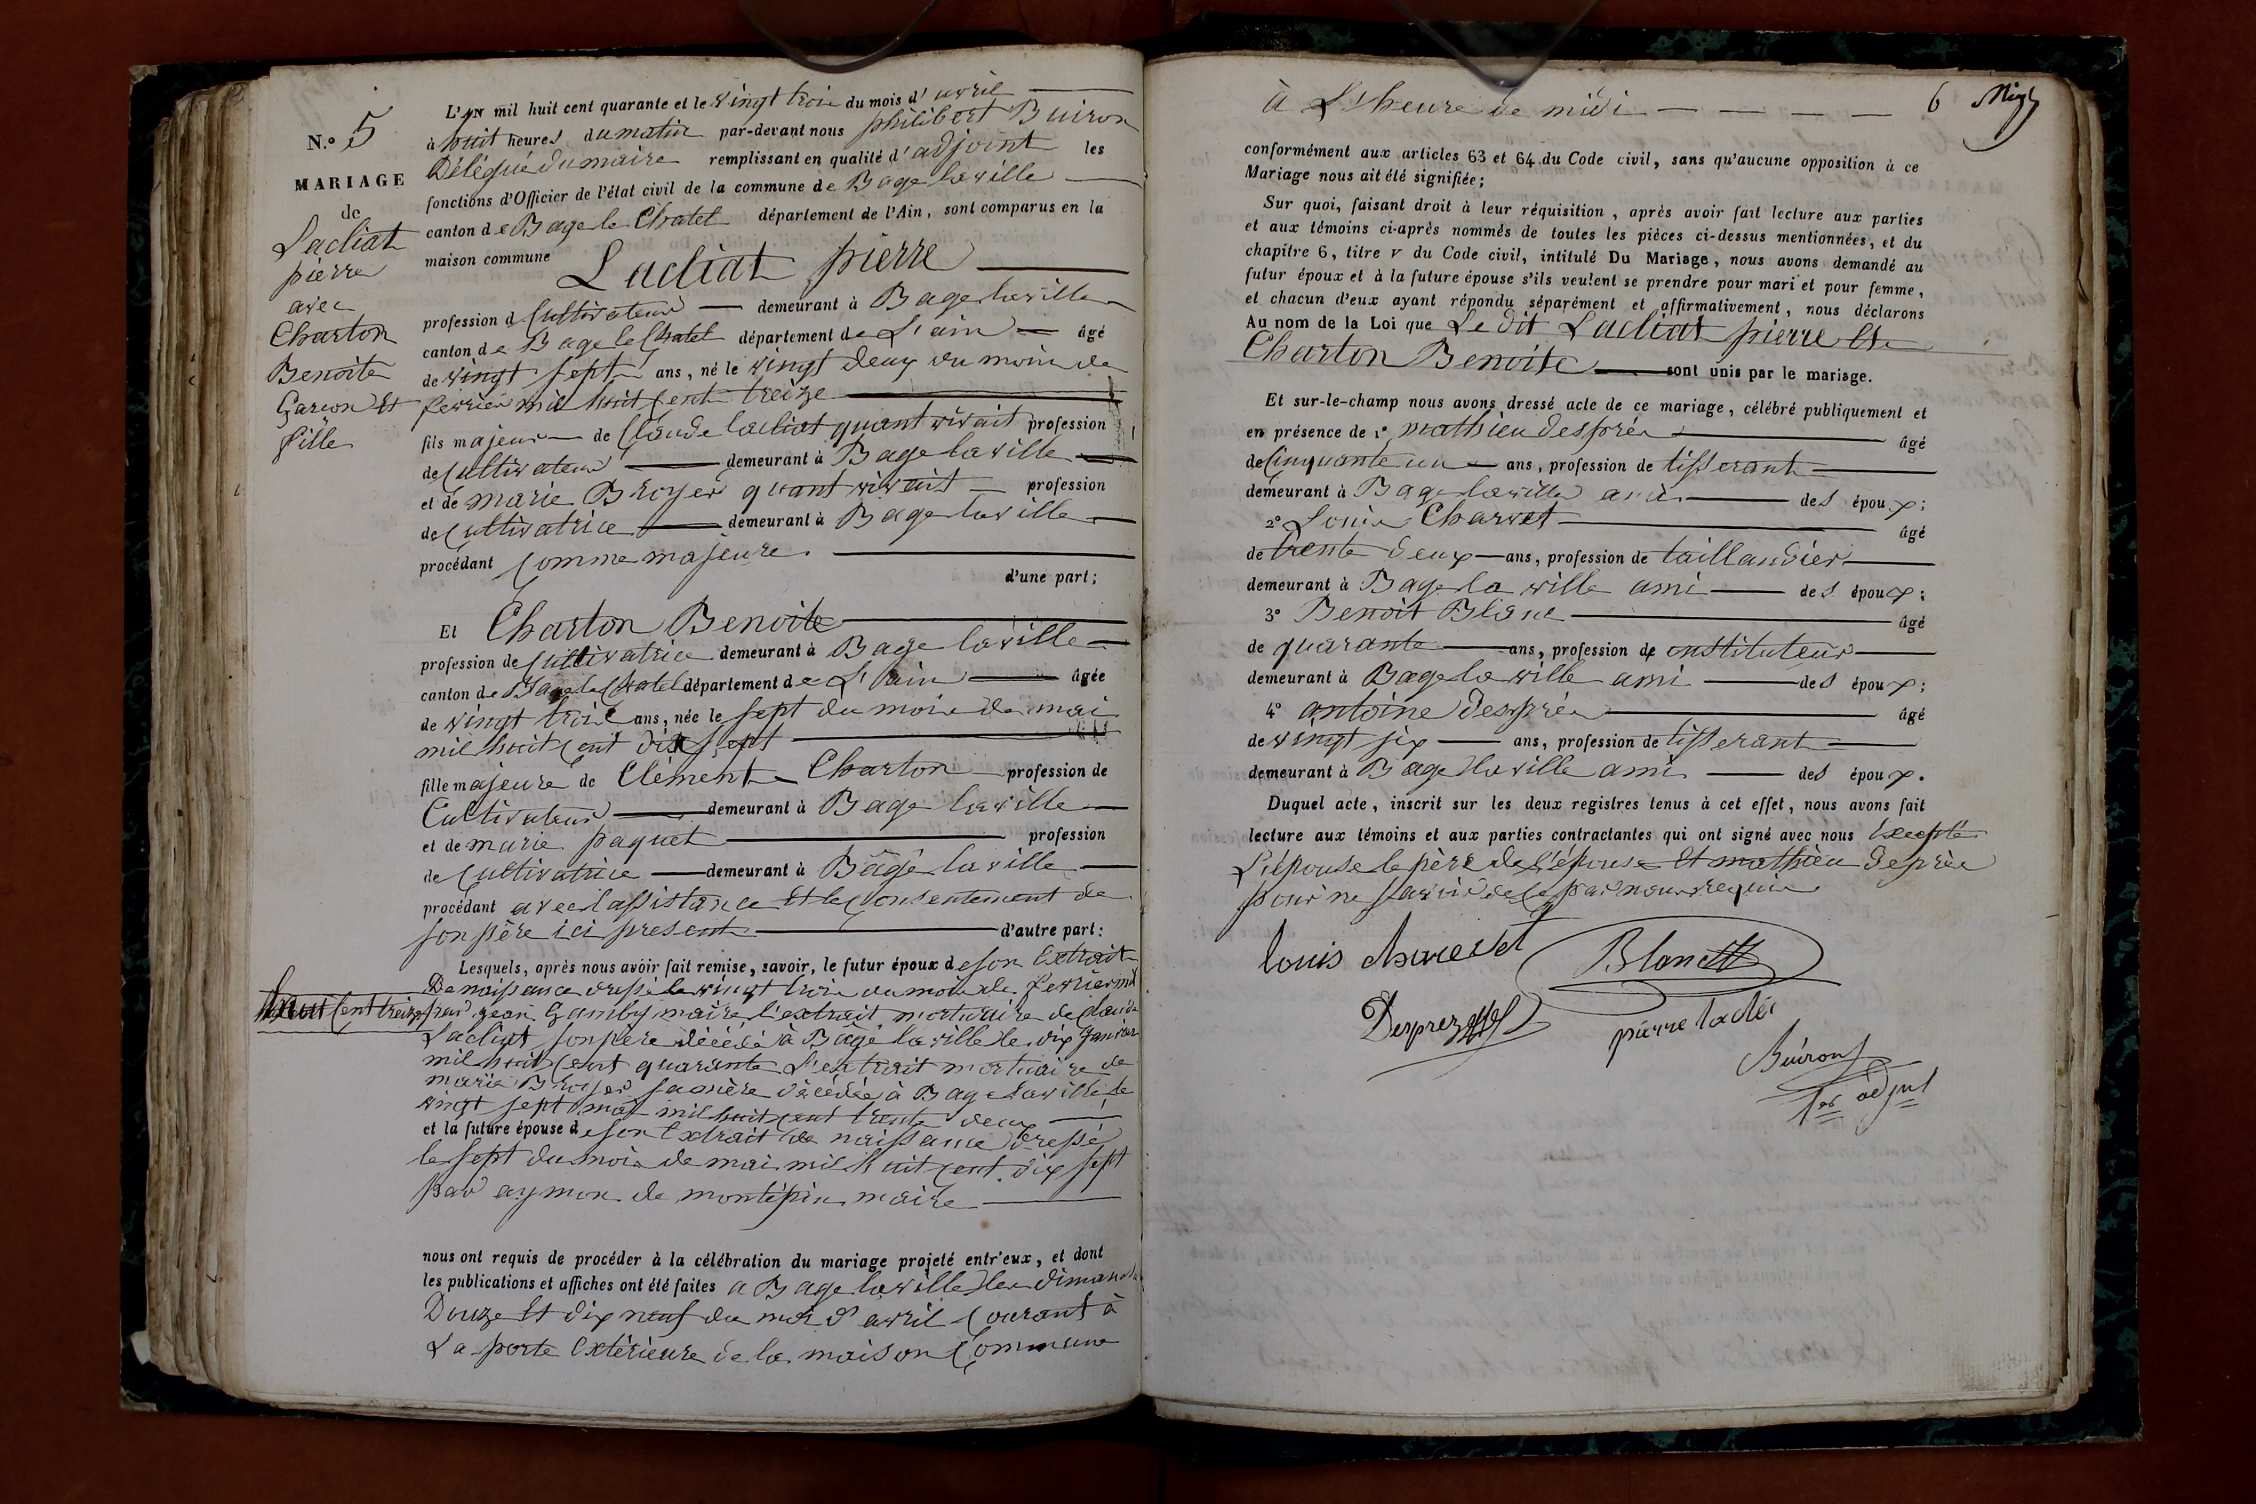 N.° 5
MARIAGE
de
Lacliat
pierre
avec
Charton
Benoite
Garcon Et
fille
L'AN mil huit cent quarante et le vingt trois du mois d'avril
à huit heures du matin par-devant nous philibert Buiron
Délégué du maire remplissant en qualité d'adjoint les
fonctions d'Officier de l'état civil de la commune de Bage laville
canton de Bage le Chatel département de l'Ain, sont comparus en la
maison commune Lacliat pierre
profession de Cultivateur demeurant à Bage laville
canton de Bage le Chatel département de L'ain âgé
de vingt sept ans, né le vingt deux du mois de
fevrier mil huit cent treize
fils majeur de Claude lacliat quant vivait profession
de Cultivateur demeurant à Bage laville
et de marie Broyer quant vivait profession
de Cultivatrice demeurant à Bage laville
procédant Comme majeure.
d'une part;
Et Charton Benoite
profession de Cultivatrice demeurant à Bage laville
canton de Bage le Chatel département de L'ain âgée
de vingt trois ans, née le sept du mois de mai
mil huit cent dix sept
fille majeure de Clément Charton profession de
Cultivateur demeurant à Bage laville
et de marie paquet profession
de Cultivatrice demeurant à Bâgé laville
procédant avec lassistance Et le Consentement de
son père ici present d'autre part:
Lesquels, après nous avoir fait remise, savoir, le futur époux de son Extrait
De naissance dressé le vingt trois du mois de fevrier mil
huit Cent treize par jean Gamby maire l'extrait mortuaire de Claude
Lacliat son père décédé à Bâgé laville le dix Janvier
mil huit Cent quarante L'extrait mortuaire de
marie Broyer sa mère décédée à Bage laville le
vingt sept mai mil huit cent trente deux
et la future épouse de son Extrait de naissance dressé
le sept du mois de mai mil huit cent dix sept
par aymon de montépin maire
nous ont requis de procéder à la célébration du mariage projeté entr'eux, et dont
les publications et affiches ont été faites a Bage laville les dimanche
Douze Et dix neuf du mois d'avril Courant à
La porte Extérieure de la maison Commune
à L'heure de midi
6
conformément aux articles 63 et 64 du Code civil, sans qu'aucune opposition à ce
Mariage nous ait été signifiée;
Sur quoi, faisant droit à leur réquisition, après avoir fait lecture aux parties
et aux témoins ci-après nommés de toutes les pièces ci-dessus mentionnées, et du
chapitre 6, titre V du Code civil, intitulé Du Mariage, nous avons demandé au
futur époux et à la future épouse s'ils veulent se prendre pour mari et pour femme,
et chacun d'eux ayant répondu séparément et affirmativement, nous déclarons
Au nom de la Loi que Le dit Lacliat pierre Et
Charton Benoite sont unis par le mariage.
Et sur-le-champ nous avons dressé acte de ce mariage, célébré publiquement et
en présence de 1° mathieu després âgé
de Cinquante un ans, profession de tisserant
demeurant à Bage laville ami des époux;
2° Louis Charvet âgé
de trente deux ans, profession de taillandier
demeurant à Bage la ville ami des époux;
3° Benoit Blanc âgé
de quarante ans, profession de instituteur
demeurant à Bage la ville ami des époux;
4° antoine després âgé
de vingt six ans, profession de tisserant
demeurant à Bage laville ami des époux.
Duquel acte, inscrit sur les deux registres tenus à cet effet, nous avons fait
lecture aux témoins et aux parties contractantes qui ont signé avec nous Excepté
L'épouse le père de l'épouse Et mathieu desprès
pour ne savoir de Ce par nous requis
louis charvet
Blanc
Desprez
pierre laclia
Buiron
1er adjnt